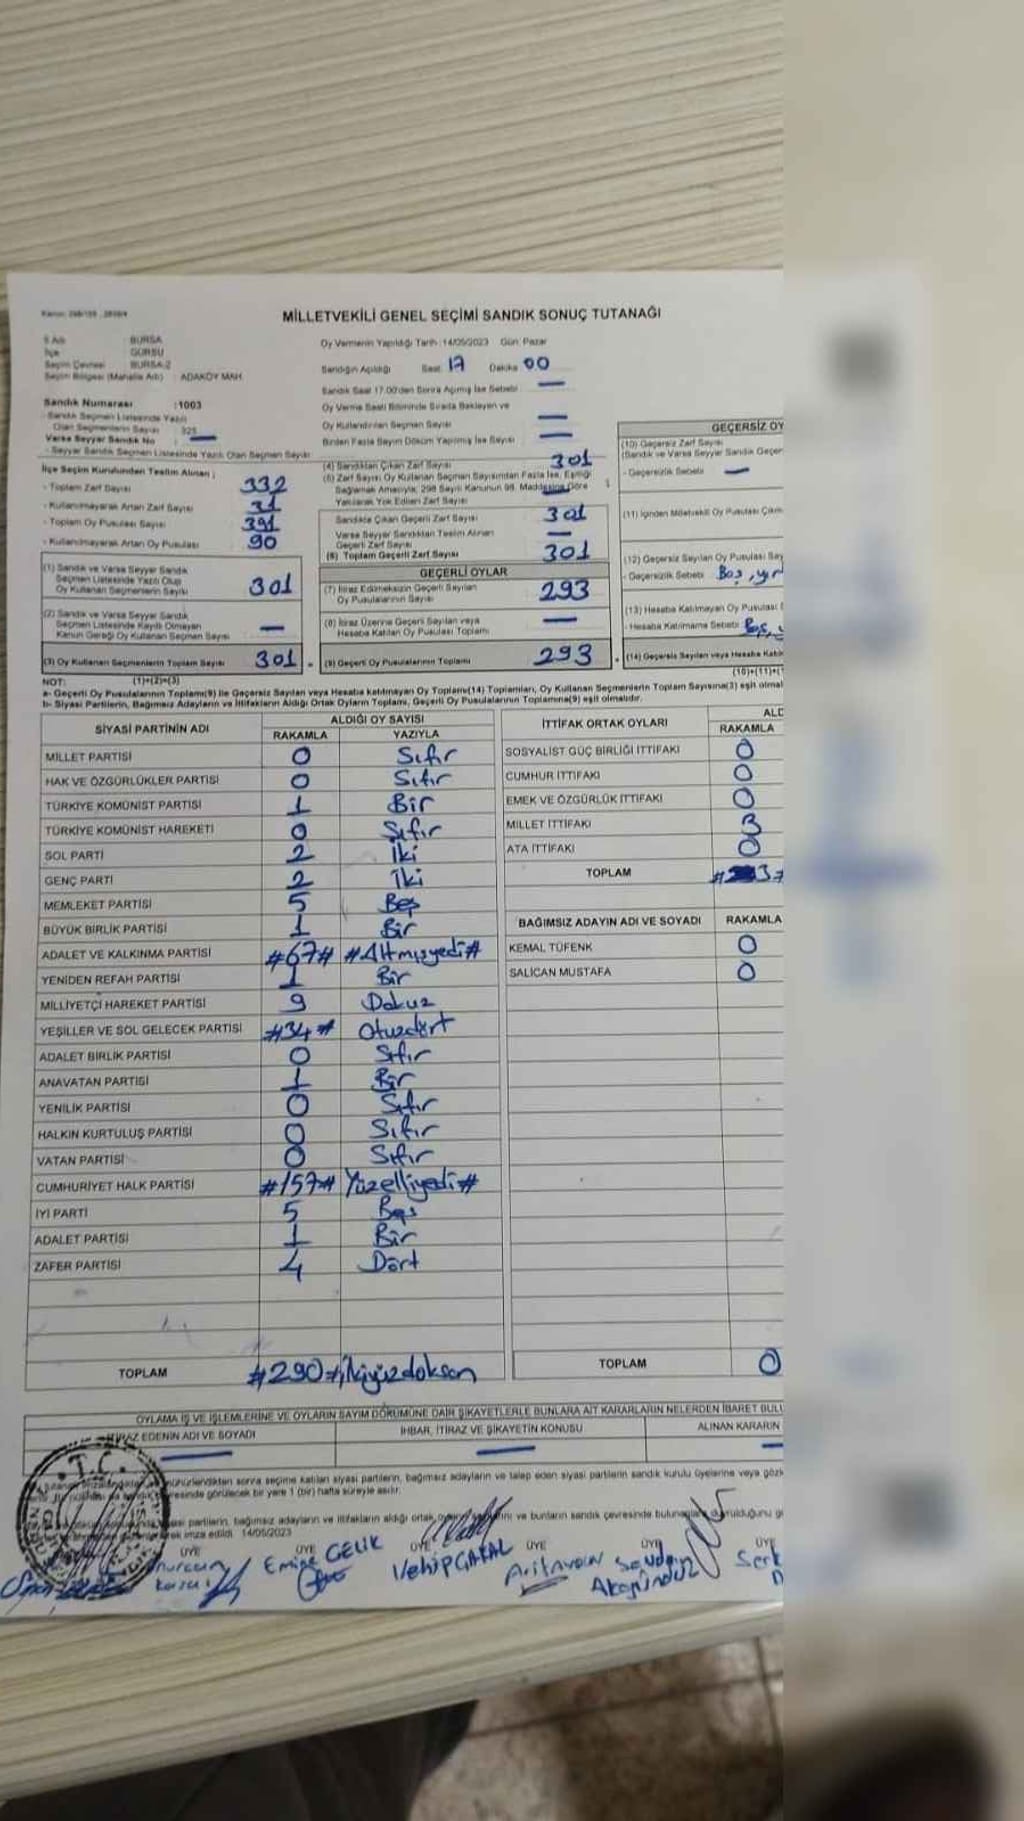 MİLLETVEKİLİ GENEL SEÇİMİ SANDIK SONUÇ TUTANAĞI
İl Adı : BURSA
İlçe : GÜRSU
Seçim Çevresi : BURSA-2
Seçim Bölgesi (Mahalle Adı) : ADAKÖY MAH.
Oy Vermenin Yapıldığı Tarih :14/05/2023 Gün: Pazar
Sandığın Açıldığı Saat 17 Dakika 00
Sandık Saat 17.00'den Sonra Açılmış İse Sebebi : —
Oy Verme Saati Bitiminde Sırada Bekleyen ve
Oy Kullandırılan Seçmen Sayısı —
Birden Fazla Sayım Döküm Yapılmış İse Sayısı —
Sandık Numarası :1003
- Sandık Seçmen Listesinde Yazılı
Olan Seçmenlerin Sayısı : 325
Varsa Seyyar Sandık No : —
- Seyyar Sandık Seçmen Listesinde Yazılı Olan Seçmen Sayısı
İlçe Seçim Kurulundan Teslim Alınan ;
- Toplam Zarf Sayısı 332
- Kullanılmayarak Artan Zarf Sayısı 31
- Toplam Oy Pusulası Sayısı 391
- Kullanılmayarak Artan Oy Pusulası 90
(1) Sandık ve Varsa Seyyar Sandık
Seçmen Listesinde Yazılı Olup
Oy Kullanan Seçmenlerin Sayısı 301
(2) Sandık ve Varsa Seyyar Sandık
Seçmen Listesinde Kayıtlı Olmayan
Kanun Gereği Oy Kullanan Seçmen Sayısı —
(3) Oy Kullanan Seçmenlerin Toplam Sayısı 301.
(1)+(2)=(3)
(4) Sandıktan Çıkan Zarf Sayısı 301
(5) Zarf Sayısı Oy Kullanan Seçmen Sayısından Fazla İse, Eşitliği
Sağlamak Amacıyla; 298 Sayılı Kanunun 98. Maddesine Göre
Yakılarak Yok Edilen Zarf Sayısı
Sandıkta Çıkan Geçerli Zarf Sayısı 301
Varsa Seyyar Sandıktan Teslim Alınan
Geçerli Zarf Sayısı —
(6) Toplam Geçerli Zarf Sayısı 301
GEÇERLİ OYLAR
(7) İtiraz Edilmeksizin Geçerli Sayılan
Oy Pusulalarının Sayısı 293
(8) İtiraz Üzerine Geçerli Sayılan veya
Hesaba Katılan Oy Pusulası Toplamı —
(9) Geçerli Oy Pusulalarının Toplamı 293
GEÇERSİZ OY
(10) Geçersiz Zarf Sayısı
(Sandık ve Varsa Seyyar Sandık Geçer
- Geçersizlik Sebebi : —
(11) İçinden Milletvekili Oy Pusulası Çıkm
(12) Geçersiz Sayılan Oy Pusulası Say
- Geçersizlik Sebebi : Boş, yır
(13) Hesaba Katılmayan Oy Pusulası
- Hesaba Katılmama Sebebi : Boş,
(14) Geçersiz Sayılan veya Hesaba Katıl
(10)+(11)+(1
NOT:
a- Geçerli Oy Pusulalarının Toplamı(9) ile Geçersiz Sayılan veya Hesaba katılmayan Oy Toplamı(14) Toplamları, Oy Kullanan Seçmenlerin Toplam Sayısına(3) eşit olmal
b- Siyasi Partilerin, Bağımsız Adayların ve İttifakların Aldığı Ortak Oyların Toplamı, Geçerli Oy Pusulalarının Toplamına(9) eşit olmalıdır.
SİYASİ PARTİNİN ADI ALDIĞI OY SAYISI
RAKAMLA YAZIYLA
MİLLET PARTİSİ 0 Sıfır
HAK VE ÖZGÜRLÜKLER PARTİSİ 0 Sıfır
TÜRKİYE KOMÜNİST PARTİSİ 1 Bir
TÜRKİYE KOMÜNİST HAREKETİ 0 Sıfır
SOL PARTİ 2 İki
GENÇ PARTİ 2 İki
MEMLEKET PARTİSİ 5 Beş
BÜYÜK BİRLİK PARTİSİ 1 Bir
ADALET VE KALKINMA PARTİSİ #67# #Altmışyedi#
YENİDEN REFAH PARTİSİ 1 Bir
MİLLİYETÇİ HAREKET PARTİSİ 9 Dokuz
YEŞİLLER VE SOL GELECEK PARTİSİ #34# Otuzdört
ADALET BİRLİK PARTİSİ 0 Sıfır
ANAVATAN PARTİSİ 1 Bir
YENİLİK PARTİSİ 0 Sıfır
HALKIN KURTULUŞ PARTİSİ 0 Sıfır
VATAN PARTİSİ 0 Sıfır
CUMHURİYET HALK PARTİSİ #157# Yüzelliyedi#
İYİ PARTİ 5 Beş
ADALET PARTİSİ 1 Bir
ZAFER PARTİSİ 4 Dört
TOPLAM #290# ikiyüzdoksan
İTTİFAK ORTAK OYLARI ALD
RAKAMLA
SOSYALİST GÜÇ BİRLİĞİ İTTİFAKI 0
CUMHUR İTTİFAKI 0
EMEK VE ÖZGÜRLÜK İTTİFAKI 0
MİLLET İTTİFAKI 3
ATA İTTİFAKI 0
TOPLAM 3#
BAĞIMSIZ ADAYIN ADI VE SOYADI RAKAMLA
KEMAL TÜFENK 0
SALİCAN MUSTAFA 0
TOPLAM 0
OYLAMA İŞ VE İŞLEMLERİNE VE OYLARIN SAYIM DÖKÜMÜNE DAİR ŞİKAYETLERLE BUNLARA AİT KARARLARIN NELERDEN İBARET BULU
İTİRAZ EDENİN ADI VE SOYADI İHBAR, İTİRAZ VE ŞİKAYETİN KONUSU ALINAN KARARIN
— — —
mühürlendikten sonra seçime katılan siyasi partilerin, bağımsız adayların ve talep eden siyasi partilerin sandık kurulu üyelerine veya gözl
çevresinde görülecek bir yere 1 (bir) hafta süreyle asılır.
siyasi partilerin, bağımsız adayların ve ittifakların aldığı ortak ve bunların sandık çevresinde
imza edildi. 14/05/2023
T.C.
ÜYE ÜYE ÜYE ÜYE ÜYE ÜYE
Emine ÇELİK
Vehip
Akgündüz